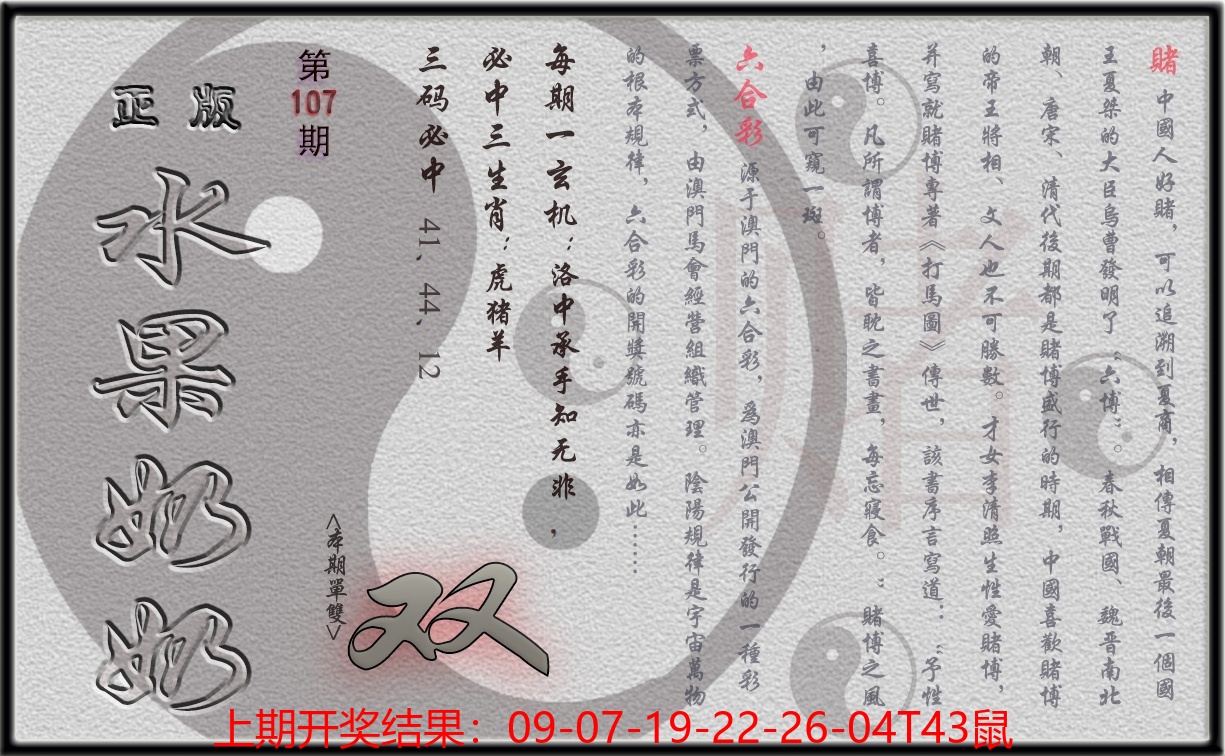 賭 中國人好賭，可以追溯到夏商，相傳夏朝最後一個國
王夏桀的大臣烏曹發明了“六博”。春秋戰國、魏晋南北
朝、唐宋、清代後期都是賭博盛行的時期，中國喜歡賭博
的帝王將相、文人也不可勝數。才女李清照生性愛賭博，
并寫就賭博專著《打馬圖》傳世，該書序言寫道：“予性
喜博。凡所謂博者，皆耽之書畫，每忘寢食。”賭博之風
，由此可窺一斑。
六合彩 源于澳門的六合彩，為澳門公開發行的一種彩
票方式，由澳門馬會經營組織管理。陰陽規律是宇宙萬物
的根本規律，六合彩的開獎號碼亦是如此……
每期一玄机：洛中承手知无非，
必中三生肖：虎猪羊
三码必中 41、44、12
第
107
期
<本期單雙>
双
正版
水果奶奶
賭
上期开奖结果：09-07-19-22-26-04T43鼠